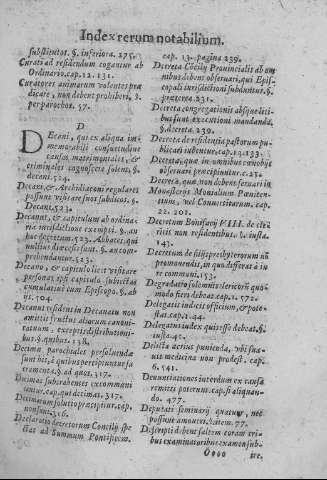 Index rerum notabilium.
substitutos. §. inferiora. 275.
Curati ad residendum cogantur ab
Ordinario. cap. 12. 131.
Curatores animarum valentes præ
dicare, non debent prohiberi, §.
per parochos. 57.
D
Decani, qui ex aliqua im
memorabili consuetudine
causas matrimoniales, &
criminales cognoscere solent, §.
decani. 524.
Decani, & Archidiaconi regulares
possunt visitare suos subditos. §.
Decani. 523.
Decanus, & capitulum ab ordina
ria iurisdictione exempti. §. an
huc
Abbates, qui
nullius diœcesis sunt. §. an com-
prehendantur. 523.
Decano, & capitulo licet visitare
personas ipsi capitulo subiectas
cumulatiue cum Episcopo. §. ab
ijs. 504.
Decanus residens in Decanatu non
amittit fructus aliarum canoni-
catuum, exceptis distributioni-
bus. §. quibus. 138.
Decimæ parochiales persoluendæ
sunt ijs, à quibus percipiuntur sa
cramenta. §. ad quas. 317.
Decimas subtrahentes excommuni
centur. cap. qui decimas. 317.
Decimarum solutio præcipitur. cap.
non sunt. 316.
Declaratio decretorum Concilij spe
ctat ad Summum Pontificem.
cap. 13. pagina 239.
Decreta Cōcilij Prouincialis ab om
nibus debent obseruari, qui Epis-
copali iurisdictioni subduntur. §.
præterea. 231.
Decreta congregationis absque liti-
bus sunt executioni mandanda.
§. decreta. 239.
Decreta de residentia pastorum pu-
blicari iubentur. cap. 12. 133.
Decreta, quæ in omnibus cœnobijs
obseruari præcipiuntur. c. 23.
Decreta, quæ non debent seruari in
Monasterijs Monialium Pœniten-
tium, vel Conuertitarum. cap.
22. 201.
Decretum Bonifacij VIII. de cle
ricis non residentibus. §. iusta.
143.
Decretum de filijs presbyterorum nō
promouendis, in quo differat à iu
re communi. 153.
Degradatio solemnis clericorū quo-
modo fieri debeat. cap. 1. 572.
Delegati iudicis officium, & pote-
stas. cap. 1. 44.
Delegatus iudex quis esse debeat. §.
iusta. 42.
Delicta acrius punienda, vbi sua-
uis medicina non prodest. cap.
6. 541.
Denuntiationes interdum ex causa
remitti poterunt. cap. si aliquan-
do. 477.
Deputati seminarij quatuor, nec
possunt amoueri, ibidem. 77.
Descripti debent saltem coram tri-
bus examinatoribus examen sub-
Oooo
ire,